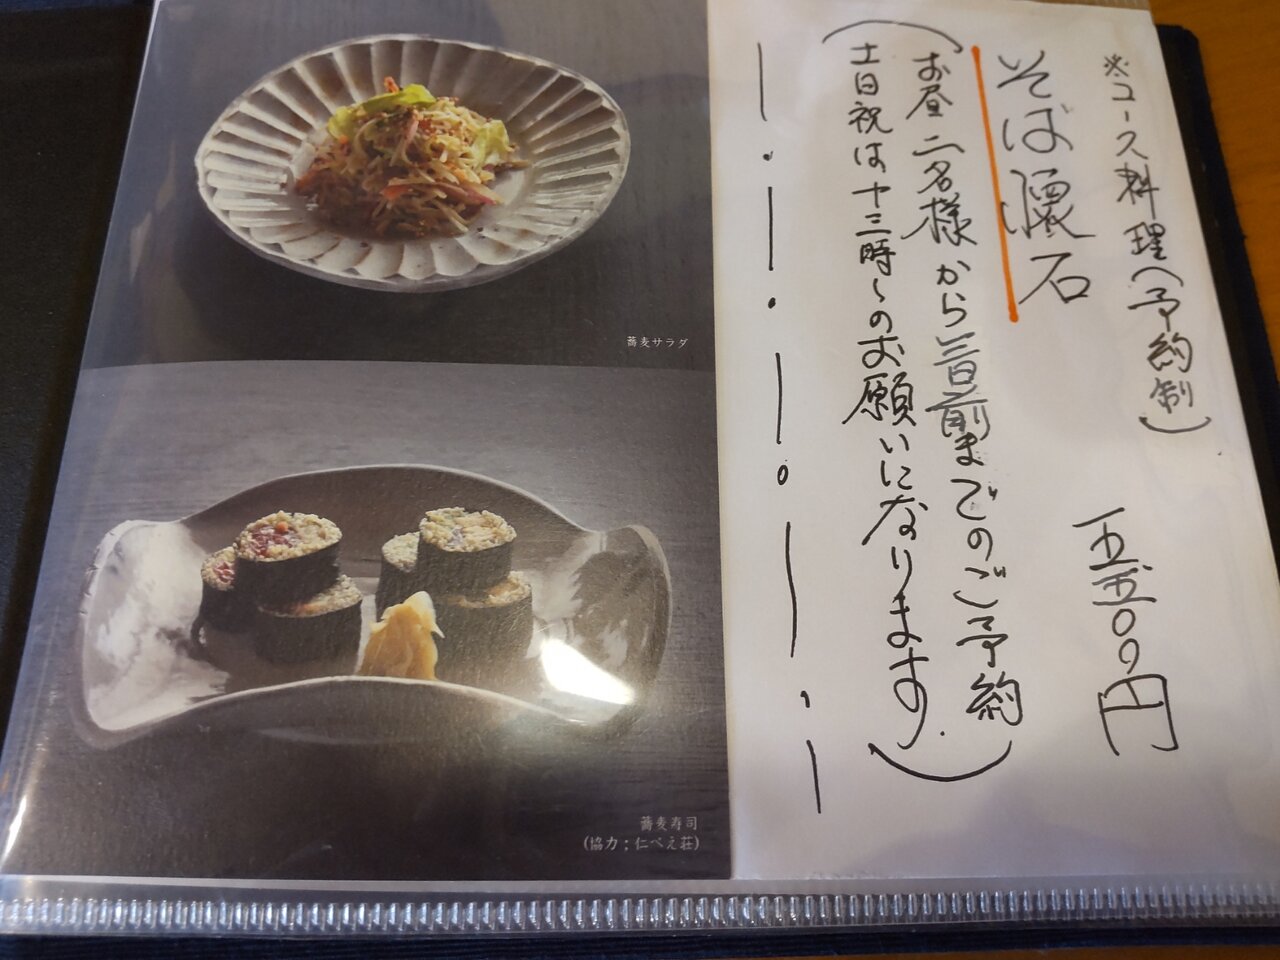 ※コース料理(予約制)
そば懐石
五五〇〇円
(お昼二名様から三日前までのご予約
土日祝は十三時〜のお願いになります.)
蕎麦サラダ
蕎麦寿司
(協力;仁べえ荘)